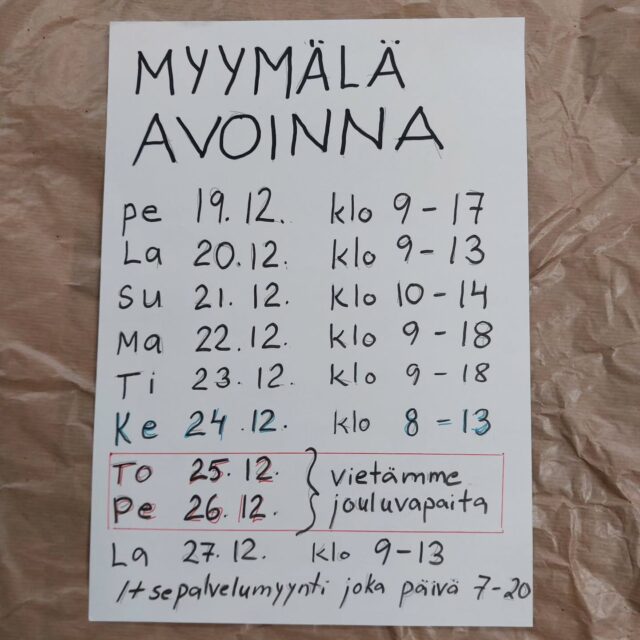 MYYMÄLÄ
AVOINNA
pe 19.12. klo 9-17
La 20.12. klo 9-13
Su 21.12. klo 10-14
Ma 22.12. klo 9-18
Ti 23.12. klo 9-18
Ke 24.12. klo 8-13
To 25.12. vietämme
Pe 26.12. jouluvapaita
La 27.12. klo 9-13
Itsepalvelumyynti joka päivä 7-20